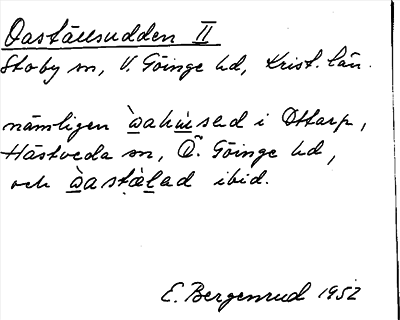 Oaställsudden II
Stoby sn, V. Göinge hd, Krist. län.
nämligen i Ottarp,
Hästveda sn, Ö. Göinge hd,
och òastàlad ibid.
E. Bergenrud 1952